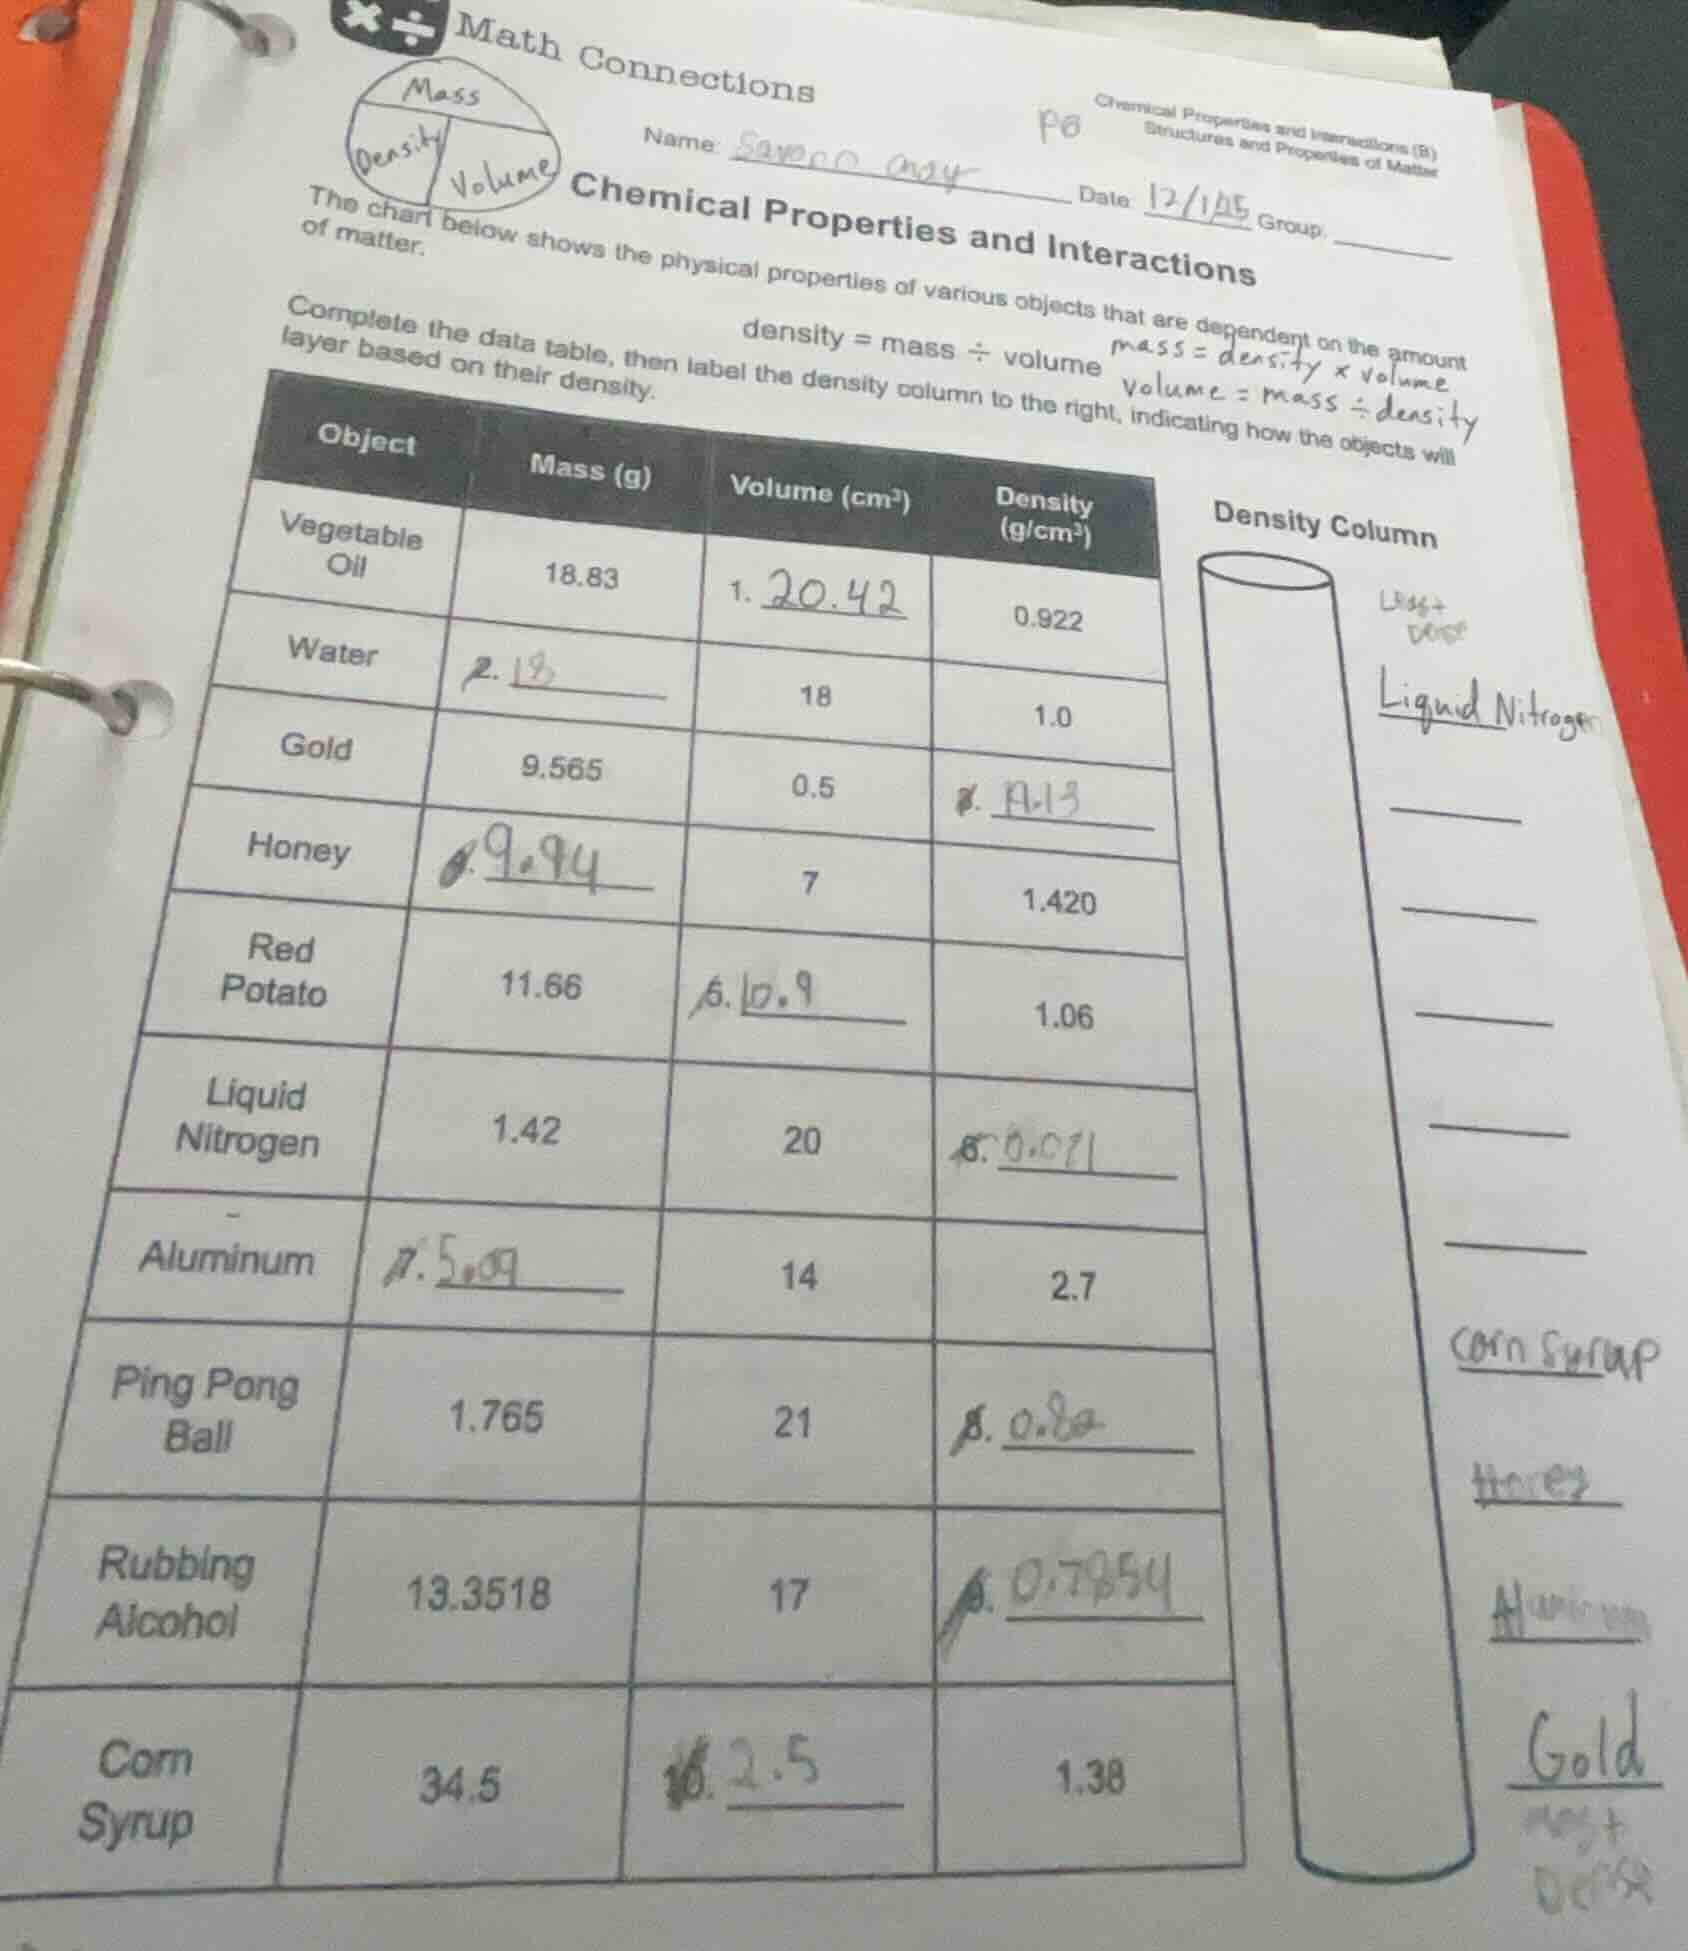 ×÷ Math Connections
Mass
Density
Volume
P8
Chemical Properties and Interactions (B)
Structures and Properties of Matter
Name:
Date 12/1/25 Group:
Chemical Properties and Interactions
The chart below shows the physical properties of various objects that are dependent on the amount
of matter.
density = mass ÷ volume
mass = density × volume
volume = mass ÷ density
Complete the data table, then label the density column to the right, indicating how the objects will
layer based on their density.
Object Mass (g) Volume (cm³) Density (g/cm³)
Vegetable Oil 18.83 1. 20.42 0.922
Water 2. 18 18 1.0
Gold 9.565 0.5 3. 19.13
Honey 4. 9.94 7 1.420
Red Potato 11.66 5. 10.9 1.06
Liquid Nitrogen 1.42 20 6. 0.071
Aluminum 7. 5.09 14 2.7
Ping Pong Ball 1.765 21 8.
Rubbing Alcohol 13.3518 17 9. 0.7854
Corn Syrup 34.5 10. 2.5 1.38
Density Column
Least
Dense
Liquid Nitrogen
Corn Syrup
Honey
Aluminum
Gold
most
Dense